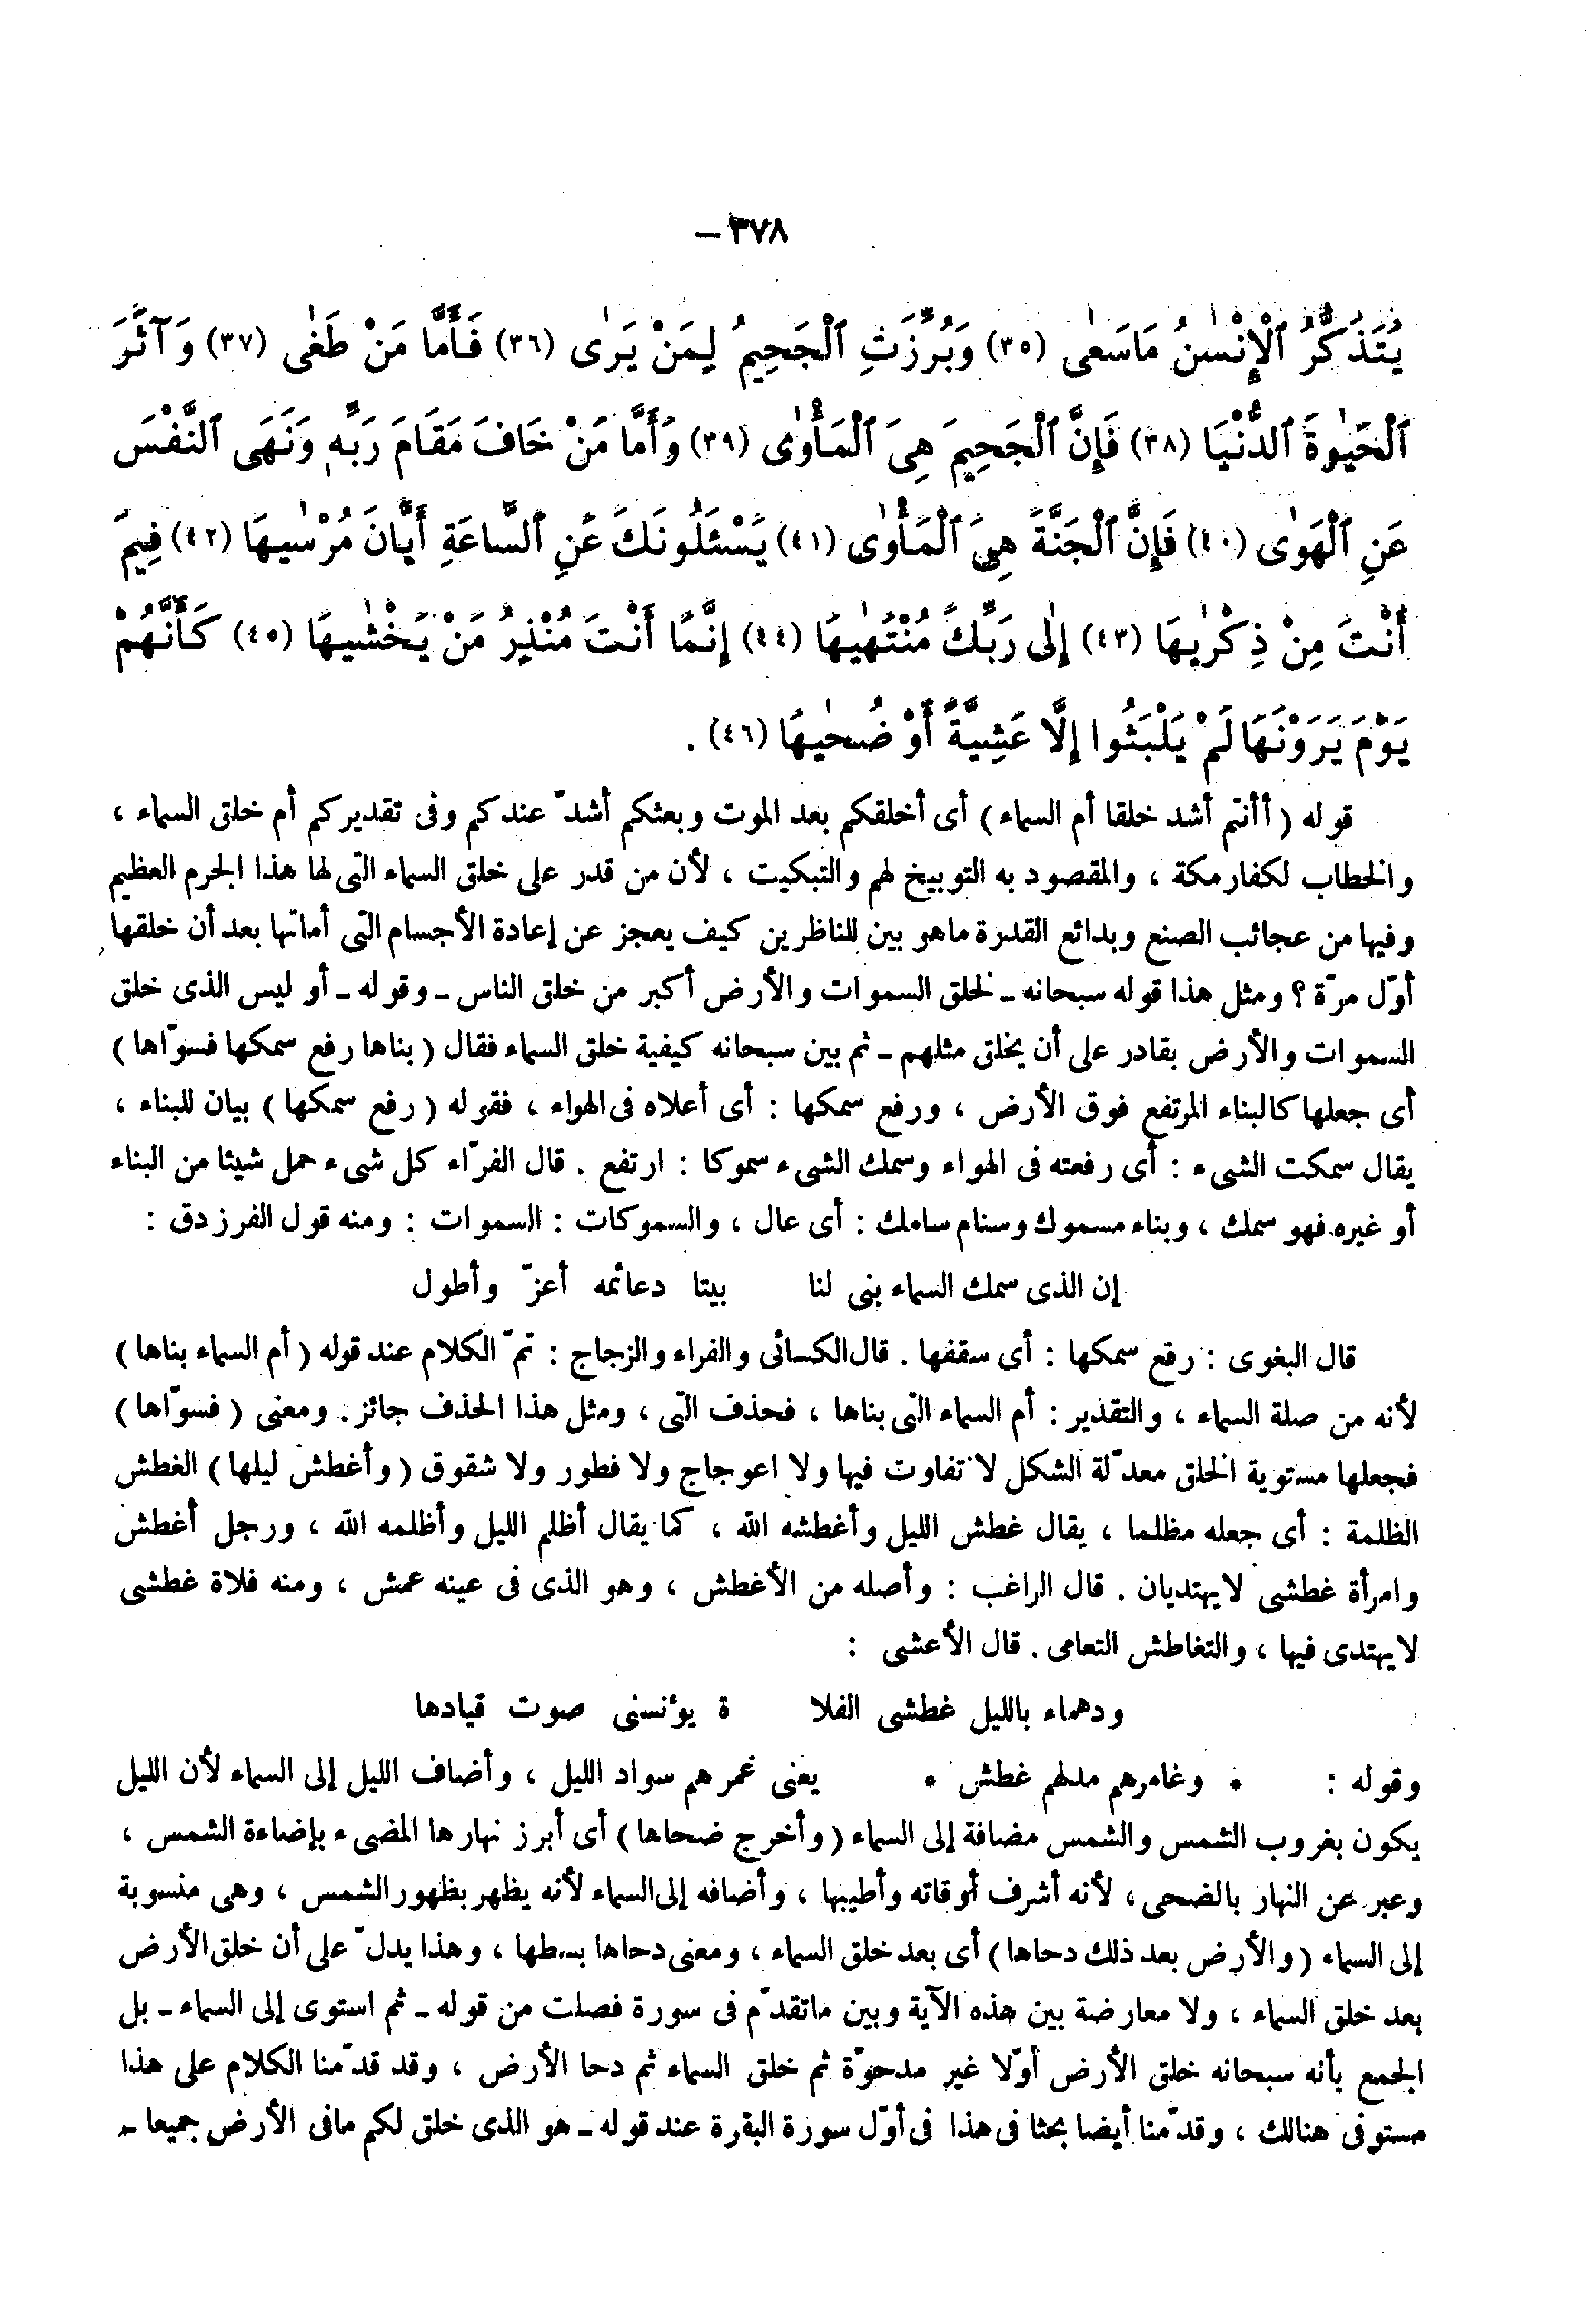 ٣٧٨ –
يَتَذَكَّرُ ٱلْإِنْسٰنُ مَاسَعٰى (٣٥) وَبُرِّزَتِ ٱلْجَحِيمُ لِمَنْ يَرٰى (٣٦) فَأَمَّا مَنْ طَغٰى (٣٧) وَآثَرَ
ٱلْحَيٰوةَ ٱلدُّنْيَا (٣٨) فَإِنَّ ٱلْجَحِيمَ هِىَ ٱلْمَأْوٰى (٣٩) وَأَمَّا مَنْ خَافَ مَقَامَ رَبِّهِ وَنَهَى ٱلنَّفْسَ
عَنِ ٱلْهَوٰى (٤٠) فَإِنَّ ٱلْجَنَّةَ هِىَ ٱلْمَأْوٰى (٤١) يَسْئَلُونَكَ عَنِ ٱلسَّاعَةِ أَيَّانَ مُرْسٰيهَا (٤٢) فِيمَ
أَنْتَ مِنْ ذِكْرٰيهَا (٤٣) إِلٰى رَبِّكَ مُنْتَهٰيهَا (٤٤) إِنَّمَا أَنْتَ مُنْذِرُ مَنْ يَخْشٰيهَا (٤٥) كَأَنَّهُمْ
يَوْمَ يَرَوْنَهَا لَمْ يَلْبَثُوا إِلَّا عَشِيَّةً أَوْ ضُحٰيهَا (٤٦) .
قوله ( أأنتم أشد خلقا أم السماء ) أى أخلقكم بعد الموت وبعثكم أشدّ عندكم وفى تقديركم أم خلق السماء ،
والخطاب لكفار مكة ، والمقصود به التوبيخ لهم والتبكيت ، لأن من قدر على خلق السماء التى لها هذا الجرم العظيم
وفيها من عجائب الصنع وبدائع القدرة ماهو بين للناظرين كيف يعجز عن إعادة الأجسام التى أماتها بعد أن خلقها
أوّل مرّة ؟ ومثل هذا قوله سبحانه ـ لخلق السموات والأرض أكبر من خلق الناس ـ وقوله ـ أو ليس الذى خلق
السموات والأرض بقادر على أن يخلق مثلهم ـ ثم بين سبحانه كيفية خلق السماء فقال ( بناها رفع سمكها فسوّاها )
أى جعلها كالبناء المرتفع فوق الأرض ، ورفع سمكها : أى أعلاه فى الهواء ، فقوله ( رفع سمكها ) بيان للبناء ،
يقال سمكت الشىء : أى رفعته فى الهواء وسمك الشىء سموكا : ارتفع . قال الفرّاء كل شىء حمل شيئا من البناء
أو غيره فهو سمك ، وبناء مسموك وسنام سامك : أى عال ، والسموكات : السموات : ومنه قول الفرزدق :
إن الذى سمك السماء بنى لنا   بيتا دعائمه أعزّ وأطول
قال البغوى : رفع سمكها : أى سقفها . قال الكسائى والفراء والزجاج : تمّ الكلام عند قوله ( أم السماء بناها )
لأنه من صلة السماء ، والتقدير : أم السماء التى بناها ، فحذف التى ، ومثل هذا الحذف جائز . ومعنى ( فسوّاها )
فجعلها مستوية الخلق معدّلة الشكل لا تفاوت فيها ولا اعوجاج ولا فطور ولا شقوق ( وأغطش ليلها ) الغطش
الظلمة : أى جعله مظلما ، يقال غطش الليل وأغطشه الله ، كما يقال أظلم الليل وأظلمه الله ، ورجل أغطش
وامرأة غطشى لايهتديان . قال الراغب : وأصله من الأغطش ، وهو الذى فى عينه عمش ، ومنه فلاة غطشى
لايهتدى فيها ، والتغاطش التعامى . قال الأعشى :
ودهماء بالليل غطشى الفلا   ة يؤنسنى صوت قيادها
وقوله :   * وغامرهم مدلهم غطش *   يعنى غمرهم سواد الليل ، وأضاف الليل إلى السماء لأن الليل
يكون بغروب الشمس والشمس مضافة إلى السماء ( وأخرج ضحاها ) أى أبرز نهارها المضىء بإضاءة الشمس ،
وعبر عن النهار بالضحى ، لأنه أشرف أوقاته وأطيبها ، وأضافه إلى السماء لأنه يظهر بظهور الشمس ، وهى منسوبة
إلى السماء ( والأرض بعد ذلك دحاها ) أى بعد خلق السماء ، ومعنى دحاها بسطها ، وهذا يدلّ على أن خلق الأرض
بعد خلق السماء ، ولا معارضة بين هذه الآية وبين ماتقدّم فى سورة فصلت من قوله ـ ثم استوى إلى السماء ـ بل
الجمع بأنه سبحانه خلق الأرض أوّلا غير مدحوّة ثم خلق السماء ثم دحا الأرض ، وقد قدّمنا الكلام على هذا
مستوفى هنالك ، وقدّمنا أيضا بحثا فى هذا فى أوّل سورة البقرة عند قوله ـ هو الذى خلق لكم مافى الأرض جميعا ـ